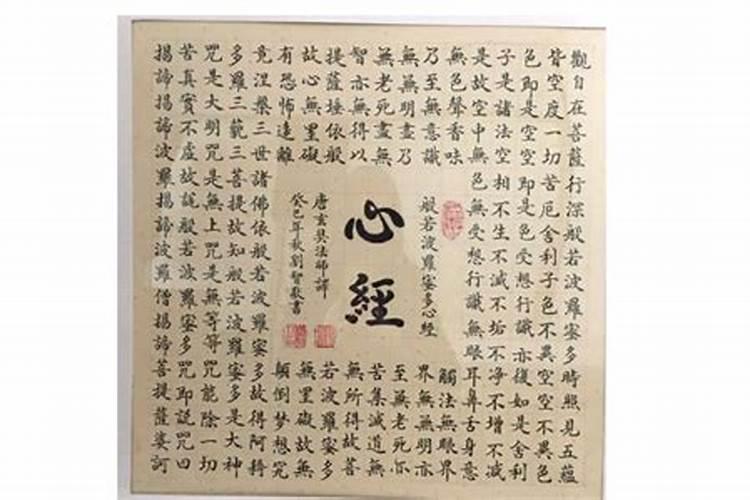 觀自在菩薩行深般若波羅蜜多時照見五蘊
皆空度一切苦厄舍利子色不異空空不異色
色即是空空即是色受想行識亦復如是舍利
子是諸法空相不生不滅不垢不净不增不減
是故空中無色無受想行識無眼耳鼻舌身意
無色聲香味
觸法無眼界
乃至無意識
界無無明亦
無無明盡乃
至無老死亦
無老死盡無
苦集滅道無
智亦無得以
無所得故菩
提薩埵依般
若波羅蜜多
故心無罣礙
無罣礙故無
有恐怖遠離
顛倒梦想究
般若波羅蜜多心經
心經
唐玄奘法師譯
癸巳年秋劉智書
竟涅槃三世諸佛依般若波羅蜜多故得阿耨
多羅三藐三菩提故知般若波羅蜜多是大神
咒是大明咒是無上咒是無等等咒能除一切
苦真實不虛故說般若波羅蜜多咒即說咒曰
揭諦揭諦波羅揭諦波羅僧揭諦菩提薩婆訶